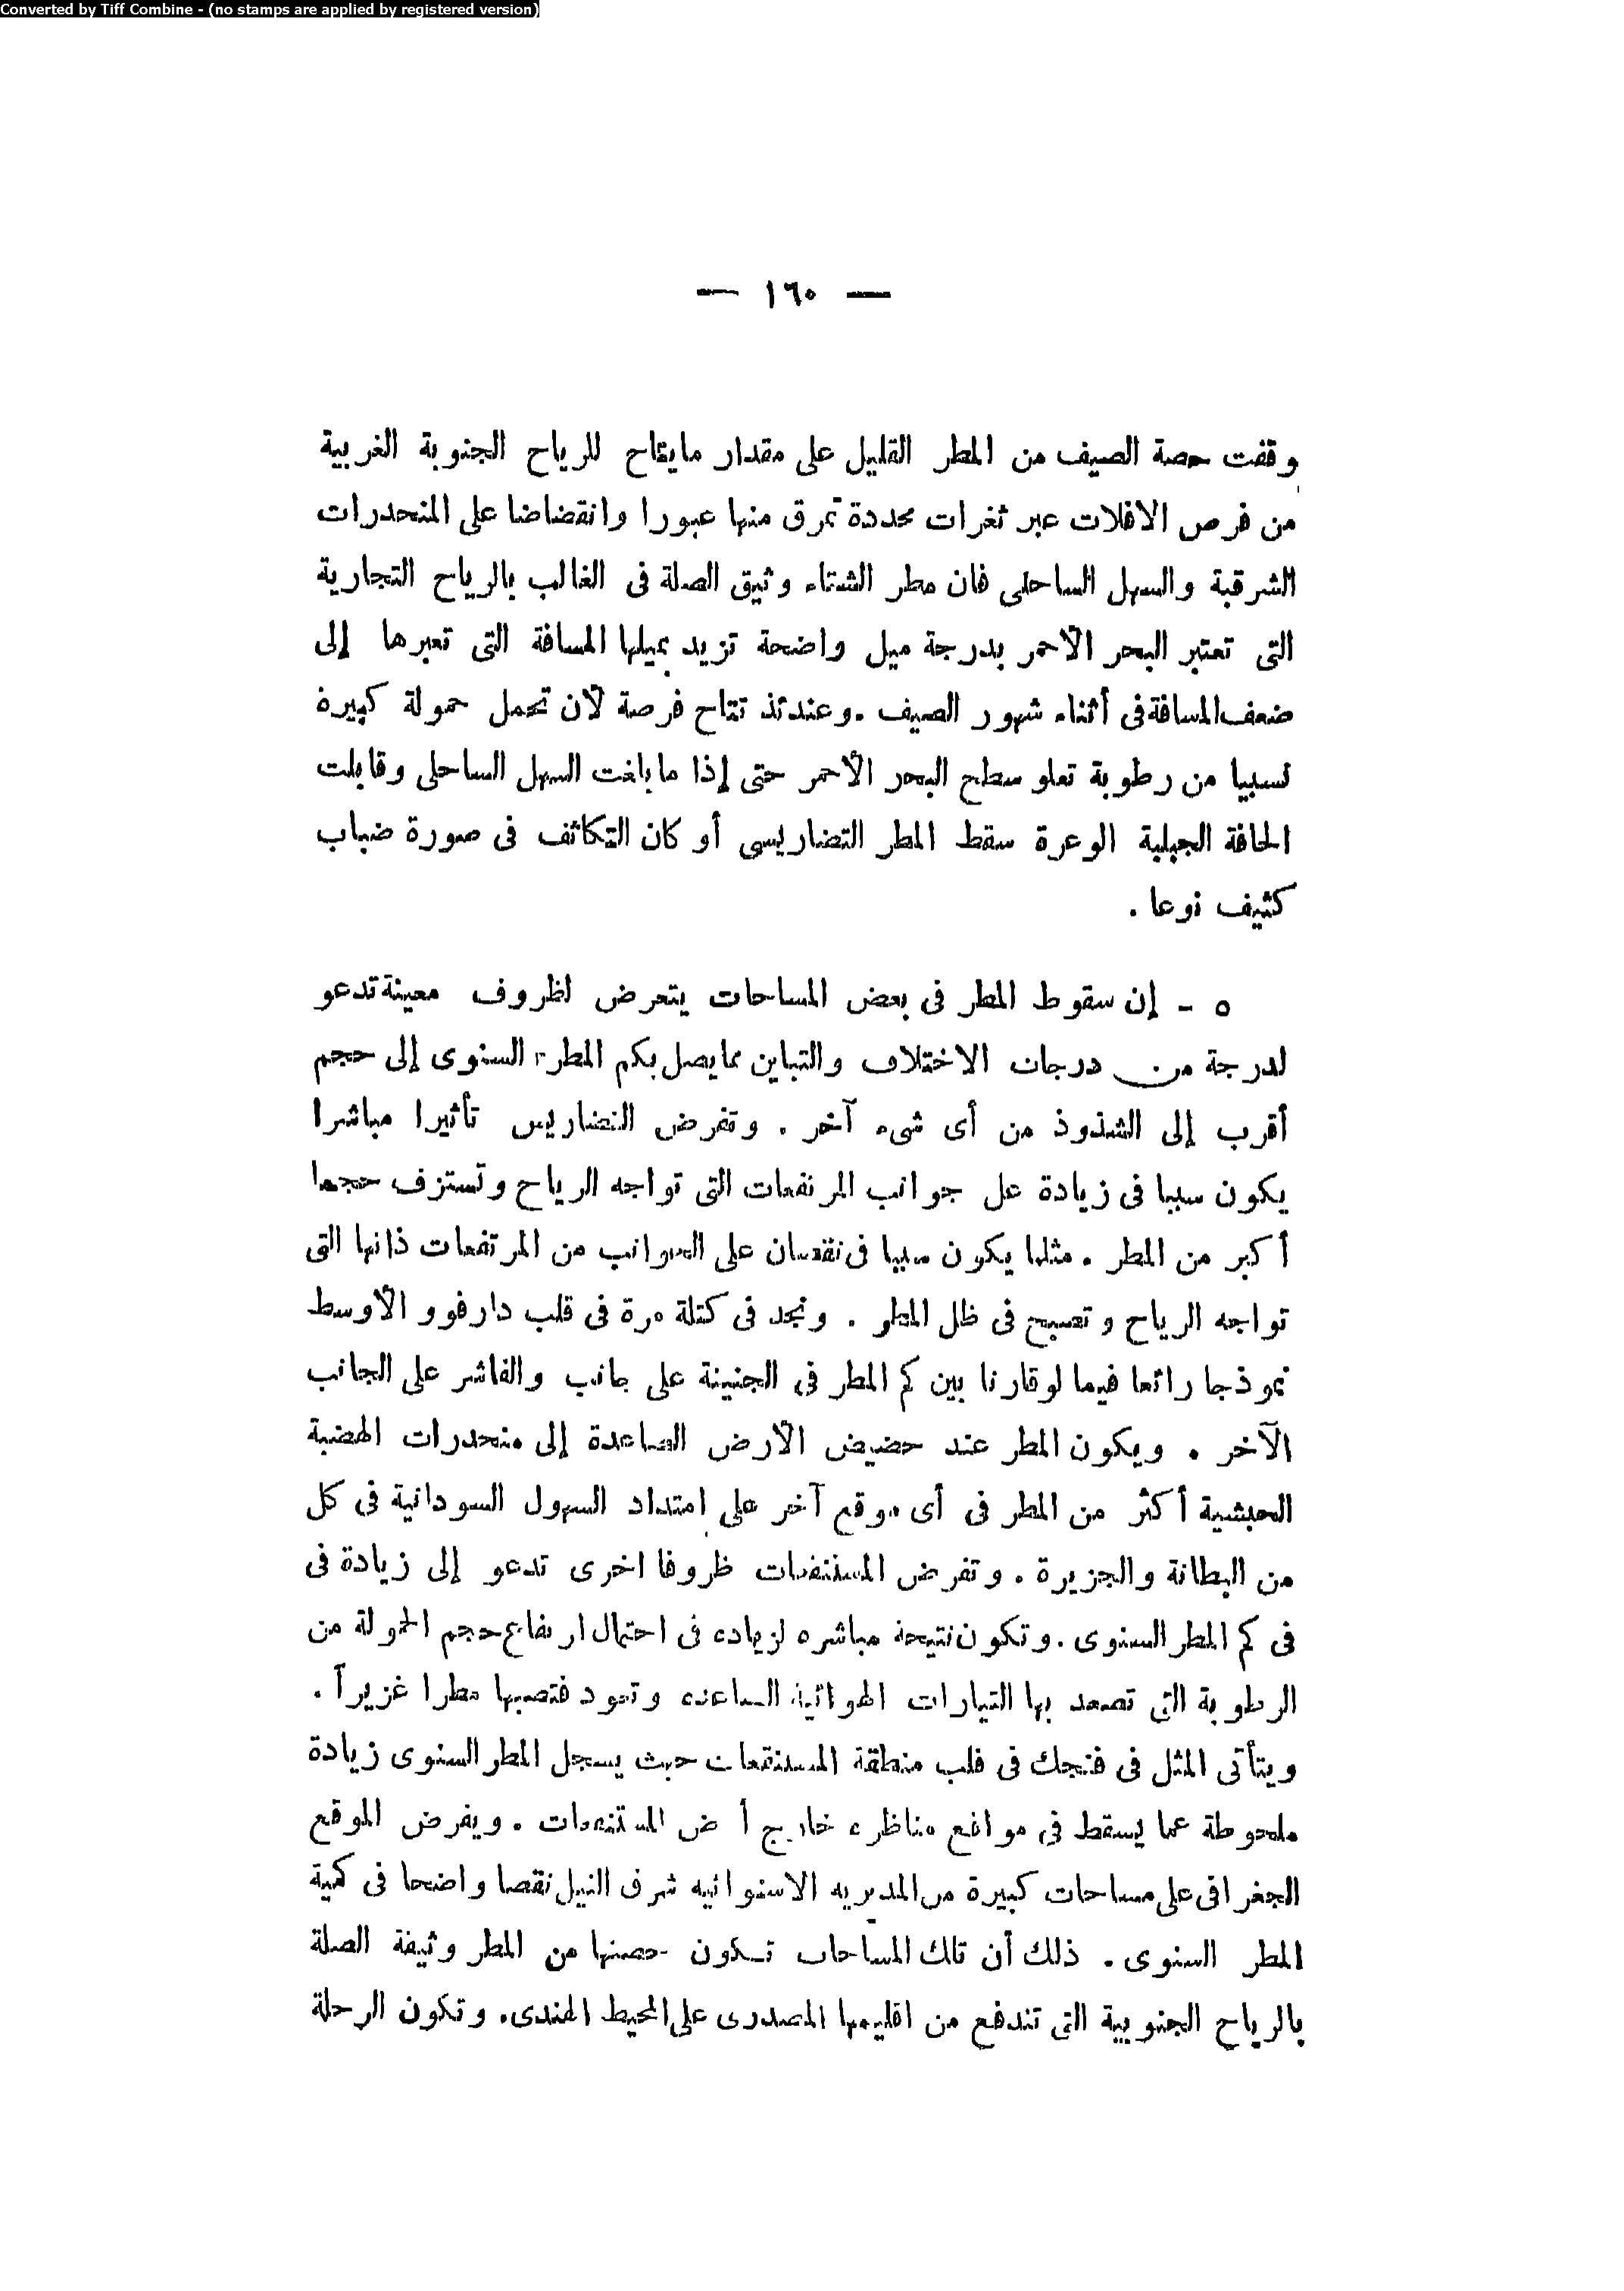 Converted by Tiff Combine - (no stamps are applied by registered version)
— ١٦٠ —
وقفت حصة الصيف من المطر القليل على مقدار مايتاح للرياح الجنوبة الغربية
من فرص الافلات عبر ثغرات محددة تمرق منها عبورا وانقضاضا على المنحدرات
الشرقية والسهل الساحلى فان مطر الشتاء وثيق الصلة فى الغالب بالرياح التجارية
التى تعتبر البحر الأحمر بدرجة ميل واضحة تزيد بميلها المسافة التى تعبرها إلى
ضعف المسافة فى أثناء شهور الصيف . وعندئذ تتاح فرصة لأن تحمل حمولة كبيرة
نسبيا من رطوبة تعلو سطح البحر الأحمر حتى إذا ما بلغت السهل الساحلى وقابلت
الحافة الجبلية الوعرة سقط المطر التضاريسى أو كان التكاثف فى صورة ضباب
كثيف نوعا .
٥ - إن سقوط المطر فى بعض المساحات يتعرض لظروف معينة تدعو
لدرجة من درجات الاختلاف والتباين مما يصل بكم المطر السنوى إلى حجم
أقرب إلى الشذوذ من أى شىء آخر . وتفرض التضاريس تأثيرا مباشرا
يكون سببا فى زيادة عل جوانب المرتفعات التى تواجه الرياح وتستزف حجما
أكبر من المطر . مثلما يكون سببا فى نقصان على الجوانب من المرتفعات ذاتها التى
تواجه الرياح وتصبح فى ظل المطر . ونجد فى كتلة مرة فى قلب دارفور الأوسط
نموذجا رائعا فيما لو قارنا بين كم المطر فى الجنينة على جانب والفاشر على الجانب
الآخر . ويكون المطر عند حضيض الأرض الصاعدة إلى منحدرات الهضبة
الحبشية أكثر من المطر فى أى موقع آخر على امتداد السهول السودانية فى كل
من البطانة والجزيرة . وتفرض المستنقعات ظروفا اخرى تدعو إلى زيادة فى
فى كم المطر السنوى . وتكون نتيجة مباشره لزياده فى احتمال ارتفاع حجم الحمولة من
الرطوبة التى تصعد بها التيارات الهوائية الصاعده وتعود فتصبها مطرا غزيراً .
ويتأتى المثل فى فنجك فى قلب منطقة المستنقعات حيث يسجل المطر السنوى زيادة
ملحوظة عما يسقط فى مواقع مناظره خارج أرض المستنقعات . ويفرض الموقع
الجغرافى على مساحات كبيرة من المديريه الاستوائيه شرق النيل نقصا واضحا فى كمية
المطر السنوى . ذلك أن تلك المساحات تكون حصتها من المطر وثيقة الصلة
بالرياح الجنوبية التى تندفع من اقليمها المصدرى على المحيط الهندى . وتكون الرحلة